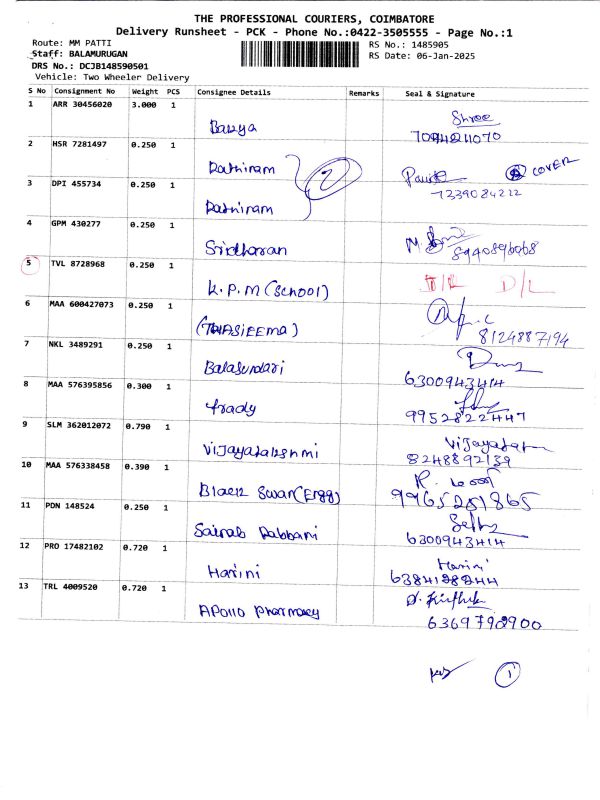 THE PROFESSIONAL COURIERS, COIMBATORE
Delivery Runsheet - PCK - Phone No.:0422-3505555 - Page No.:1
Route: MM PATTI RS No.: 1485905
Staff: BALAMURUGAN RS Date: 06-Jan-2025
DRS No.: DCJB148590501
Vehicle: Two Wheeler Delivery
S No Consignment No Weight PCS Consignee Details Remarks Seal & Signature
1 ARR 30456020 3.000 1
Shree
2 HSR 7281497 0.250 1
Rathinam 2 COVER
3 DPI 455734 0.250 1
7339084222
Rathinam
4 GPM 430277 0.250 1
Sridharan
5 TVL 8728968 0.250 1
K.P.M (School) D/L
6 MAA 600427073 0.250 1
8124887194
7 NKL 3489291 0.250 1
Balasundari 6300943414
8 MAA 576395856 0.300 1
9952822447
9 SLM 362012072 0.790 1
Vijayalakshmi 8248892139
10 MAA 576338458 0.390 1
Black Swan (Engg) 9965281865
11 PDN 148524 0.250 1
Sainab Rabbani 6300943414
12 PRO 17482102 0.720 1
Harini
Harini
13 TRL 4009520 0.720 1
Apollo Pharmacy 6369798900
1